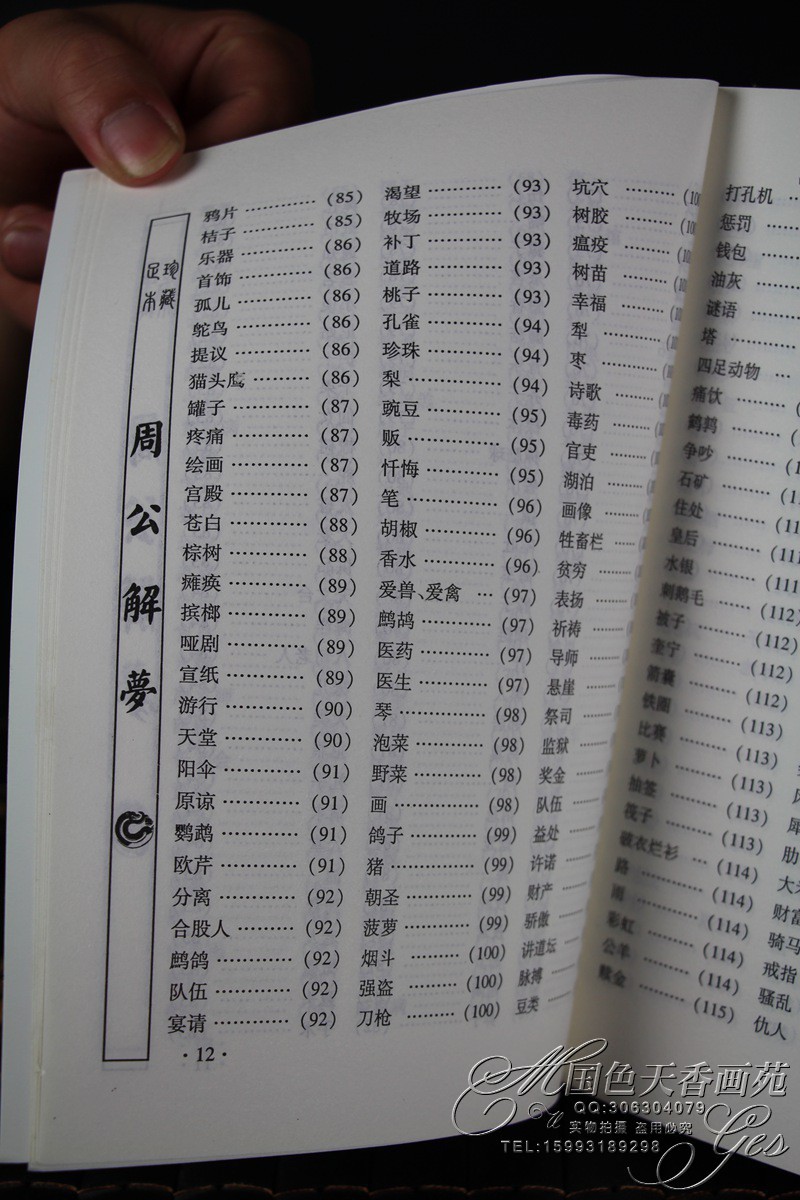 珍藏
足本
周公解夢
鸦片 ············ (85)
桔子 ············ (85)
乐器 ············ (86)
首饰 ············ (86)
孤儿 ············ (86)
鸵鸟 ············ (86)
提议 ············ (86)
猫头鹰 ········· (86)
罐子 ············ (87)
疼痛 ············ (87)
绘画 ············ (87)
宫殿 ············ (87)
苍白 ············ (88)
棕树 ············ (88)
瘫痪 ············ (89)
摈榔 ············ (89)
哑剧 ············ (89)
宣纸 ············ (89)
游行 ············ (90)
天堂 ············ (90)
阳伞 ············ (91)
原谅 ············ (91)
鹦鹉 ············ (91)
欧芹 ············ (91)
分离 ············ (92)
合股人 ········· (92)
鹧鸽 ············ (92)
队伍 ············ (92)
宴请 ············ (92)
渴望 ············ (93)
牧场 ············ (93)
补丁 ············ (93)
道路 ············ (93)
桃子 ············ (93)
孔雀 ············ (94)
珍珠 ············ (94)
梨 ············ (94)
豌豆 ············ (95)
贩 ············ (95)
忏悔 ············ (95)
笔 ············ (96)
胡椒 ············ (96)
香水 ············ (96)
爱兽、爱禽 ··· (97)
鹧鸪 ············ (97)
医药 ············ (97)
医生 ············ (97)
琴 ············ (98)
泡菜 ············ (98)
野菜 ············ (98)
画 ············ (98)
鸽子 ············ (99)
猪 ············ (99)
朝圣 ············ (99)
菠萝 ············ (99)
烟斗 ············ (100)
强盗 ············ (100)
刀枪 ············ (100)
坑穴 ·········
树胶 ·········
瘟疫 ·········
树苗 ·········
幸福 ·········
犁 ·········
枣 ·········
诗歌 ·········
毒药 ·········
官吏 ·········
湖泊 ·········
画像 ·········
牲畜栏 ······
贫穷 ·········
表扬 ·········
祈祷 ·········
导师 ·········
悬崖 ·········
祭司 ·········
监狱 ·········
奖金 ·········
队伍 ·········
益处 ·········
许诺 ·········
财产 ·········
骄傲 ·········
讲道坛 ······
脉搏 ·········
豆类 ·········
·12·
打孔机 ······
惩罚 ·········
钱包 ·········
油灰 ·········
谜语 ·········
塔 ·········
四足动物 ···
痛饮 ·········
鹌鹑 ·········
争吵 ·········
石矿 ·········
住处 ·········
皇后 ·········
水银 ·········
刺鹅毛 ······ (112)
被子 ········· (112)
奎宁 ········· (112)
箭囊 ········· (112)
铁圈 ········· (113)
比赛 ········· (113)
萝卜 ········· (113)
抽签 ········· (113)
筏子 ········· (113)
破衣烂衫 ··· (114)
路 ········· (114)
雨 ········· (114)
彩虹 ········· (114)
公羊 ········· (114)
赎金 ········· (115)
肋
大
财富
骑马
戒指
骚乱
仇人
国色天香画苑
QQ:306304079
实物拍摄 盗用必究
TEL:15993189298